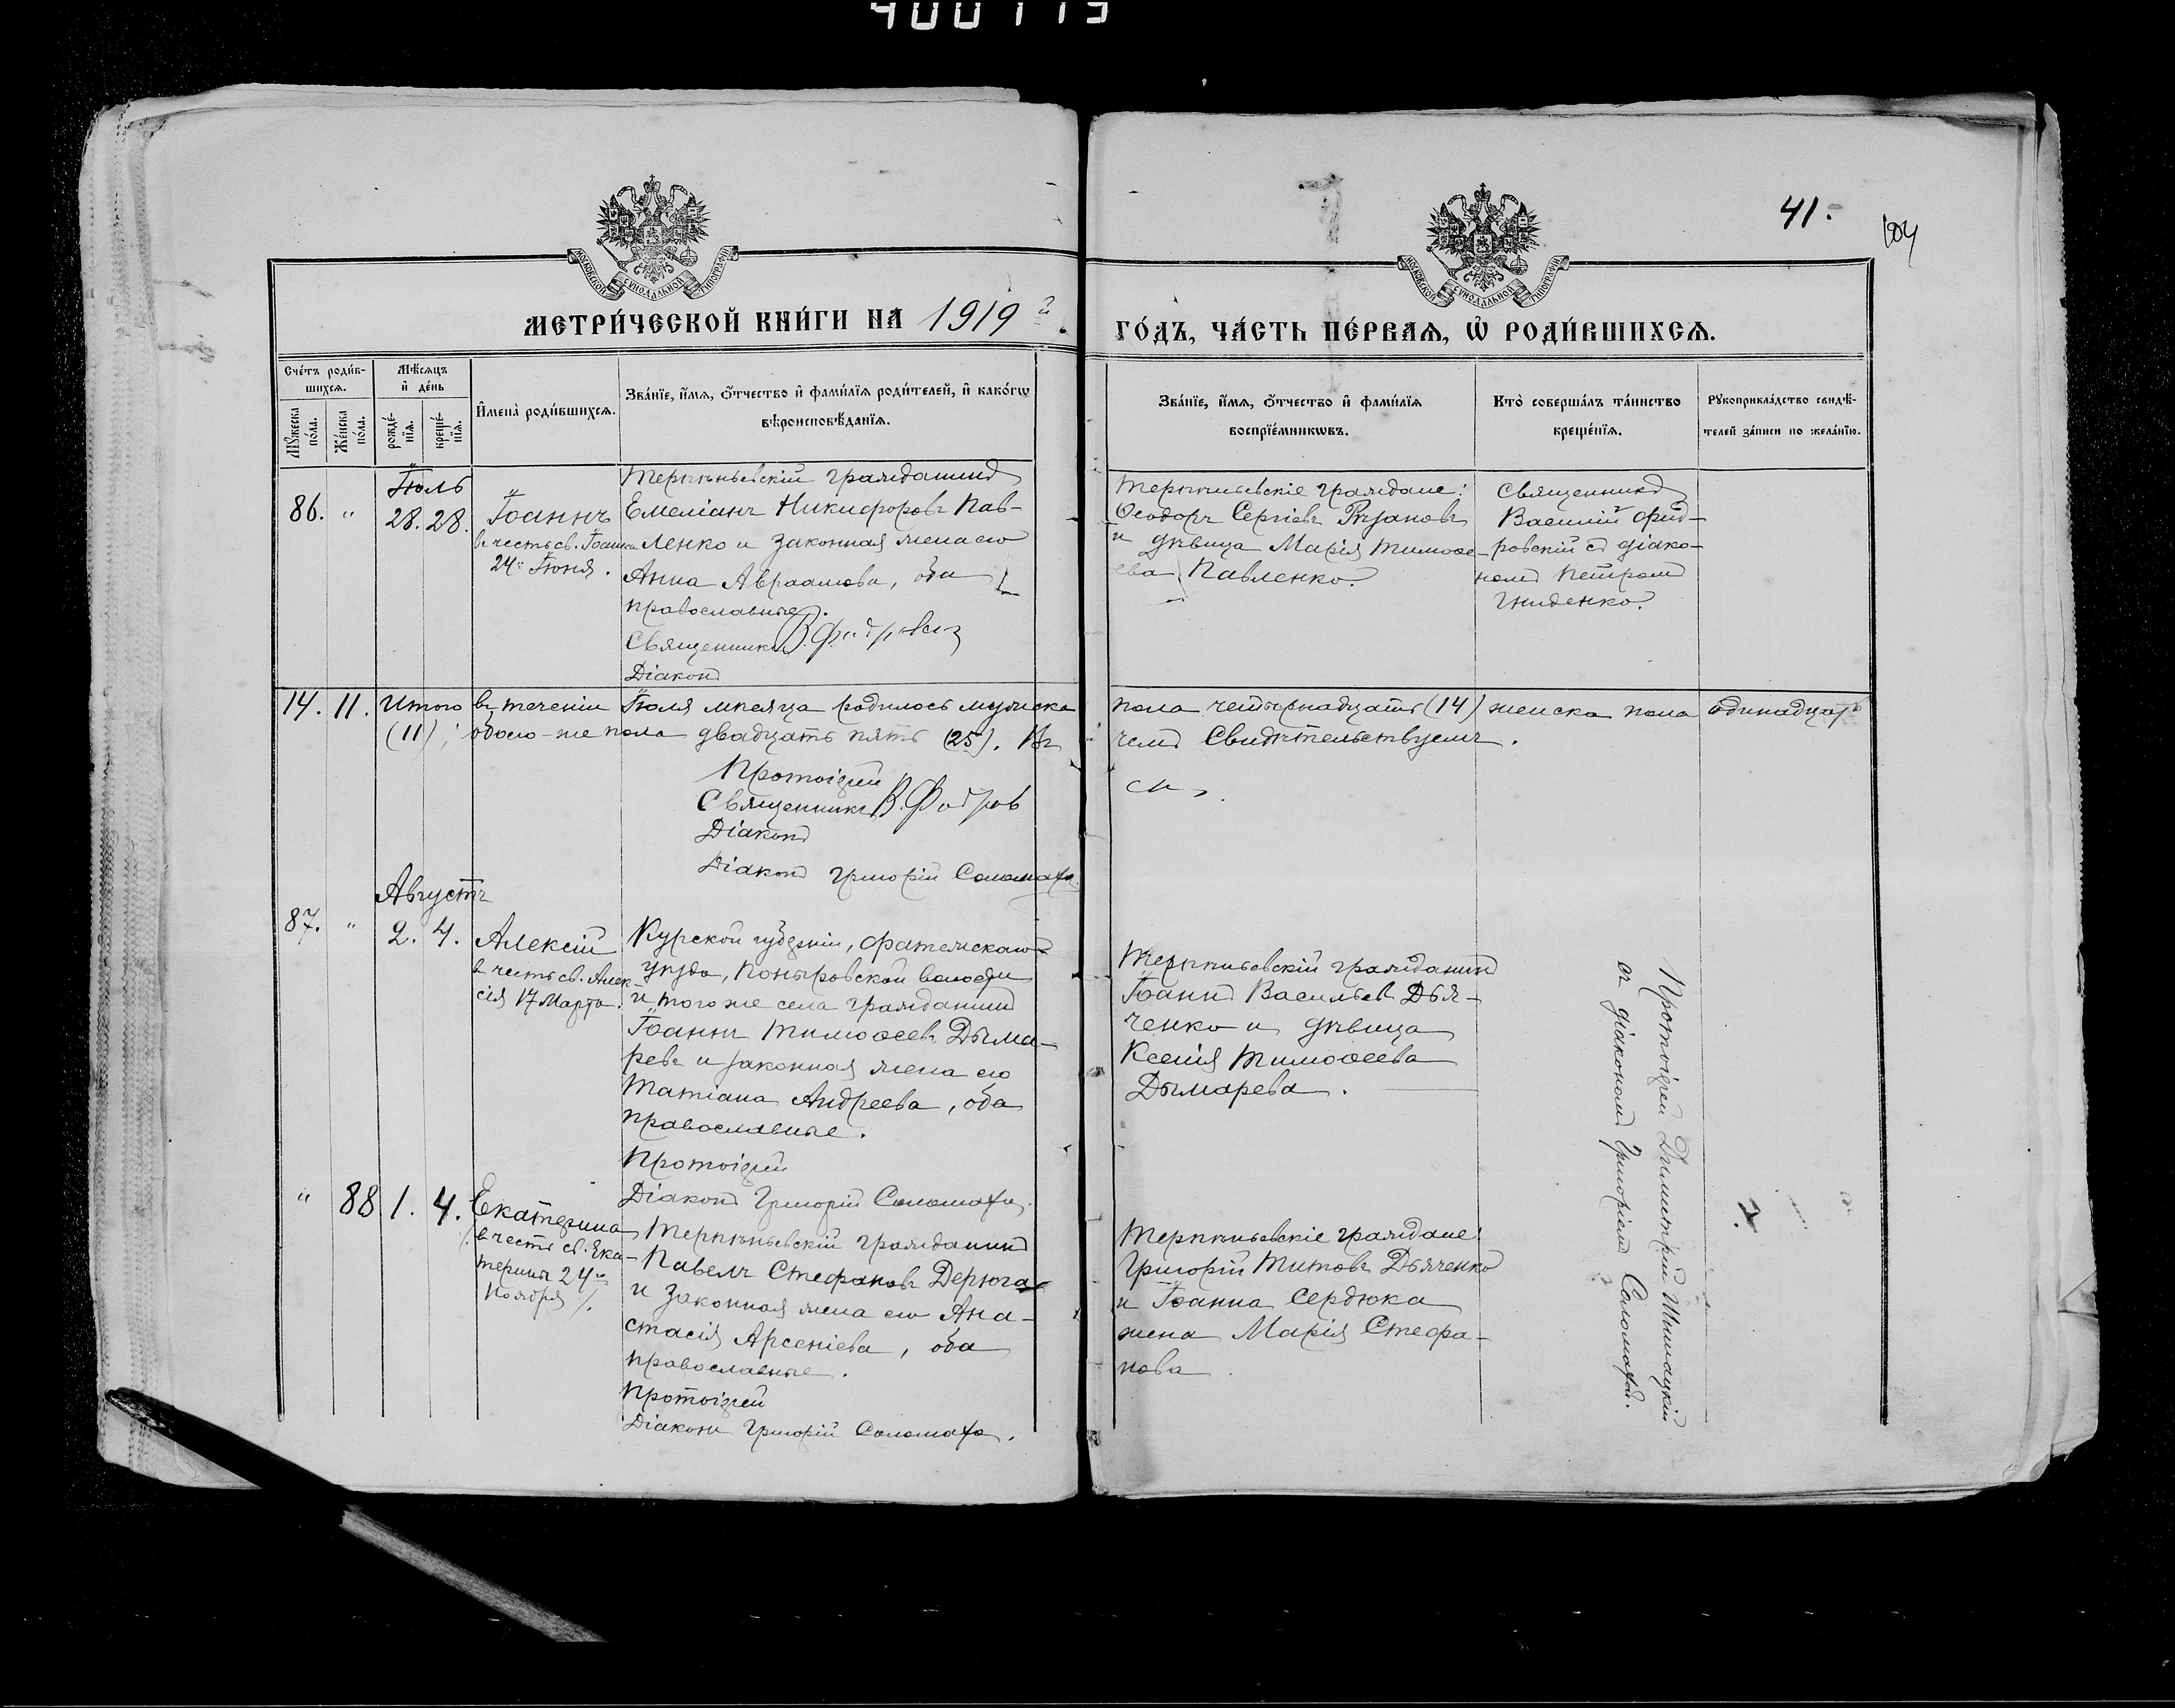 400113
41.
104
МОСКОВСКОЙ СУНОДАЛЬНОЙ ТИПОГРАФІИ
МОСКОВСКОЙ СУНОДАЛЬНОЙ ТИПОГРАФІИ
МЕТРИ́ЧЕСКОЙ КНИ́ГИ НА 1919 г.
ГО́ДЪ, ЧА́СТЬ ПЕ́РВАЯ, Ѡ РОДИ́ВШИХСЯ.
Сче́тъ роди́в-
шихся.
Мѣ́сяцъ
и де́нь
Му́жеска
по́ла.
Же́нска
по́ла.
рожде́-
нїя.
креще́-
нїя.
Имена̀ роди́вшихся.
Зва́нїе, и́мя, о́тчество и фами́лїя роди́телей, и како́гѡ
вѣроисповѣ́данїя.
Зва́нїе, и́мя, о́тчество и фами́лїя
воспрїе́мникѡвъ.
Кто̀ соверша́лъ та́инство
креще́нїя.
Рꙋкоприкла́дство свидѣ́-
телей за́писи по жела́нїю.
Іюль
86. " 28. 28.
Іоаннъ
въ честь св. Іоанна
24го Іюня.
Терпѣньевскій гражданинъ
Емеліанъ Никифоровъ Пав-
ленко и законная жена его
Анна Авраамова, оба
православные.
Священникъ В. Фидровск
Діаконъ
Терпѣньевскіе граждане:
Ѳеодоръ Сергіевъ Рѣзановъ
и дѣвица Марія Тимоѳе-
ева Павленко.
Священникъ
Василій Фид-
ровскій съ діако-
номъ Петромъ
Гниденко.
14. 11. Итого въ теченіи Іюля мѣсяца родилось мужеска пола четырнадцать (14) женска пола одинадцать
(11); обоего-же пола двадцать пять (25). Въ чемъ свидѣтельствуемъ.
Протоіерей
Священникъ В. Фидров
Діаконъ
Діаконъ Григорій Соломаха.
Августъ
87. " 2. 4.
Алексій
въ честь св. Алек-
сія 17 Марта.
Курской губерніи, Фатежскаго
уѣзда, Поныровской волости
и того же села гражданинъ
Іоаннъ Тимоѳеевъ Дыма-
ревъ и законная жена его
Татіана Андреева, оба
православные.
Протоіерей
Діаконъ Григорій Соломаха.
Терпѣньевскій гражданинъ
Іоаннъ Васильевъ Дья-
ченко и дѣвица
Ксенія Тимоѳеева
Дымарева.
Протоіерей Димитрій Шимацкій
съ діакономъ Григоріемъ Соломахой.
" 88 1. 4.
Екатерина
въ честь св. Ека-
терины 24го
Ноября
Терпѣньевскій гражданинъ
Павелъ Стефановъ Дерюга
и законная жена его Ана-
стасія Арсеніева, оба
православные.
Протоіерей
Діаконъ Григорій Соломаха.
Терпѣньевскіе граждане:
Григорій Титовъ Дьяченко
и Іоанна Сердюка
жена Марія Стефа-
нова